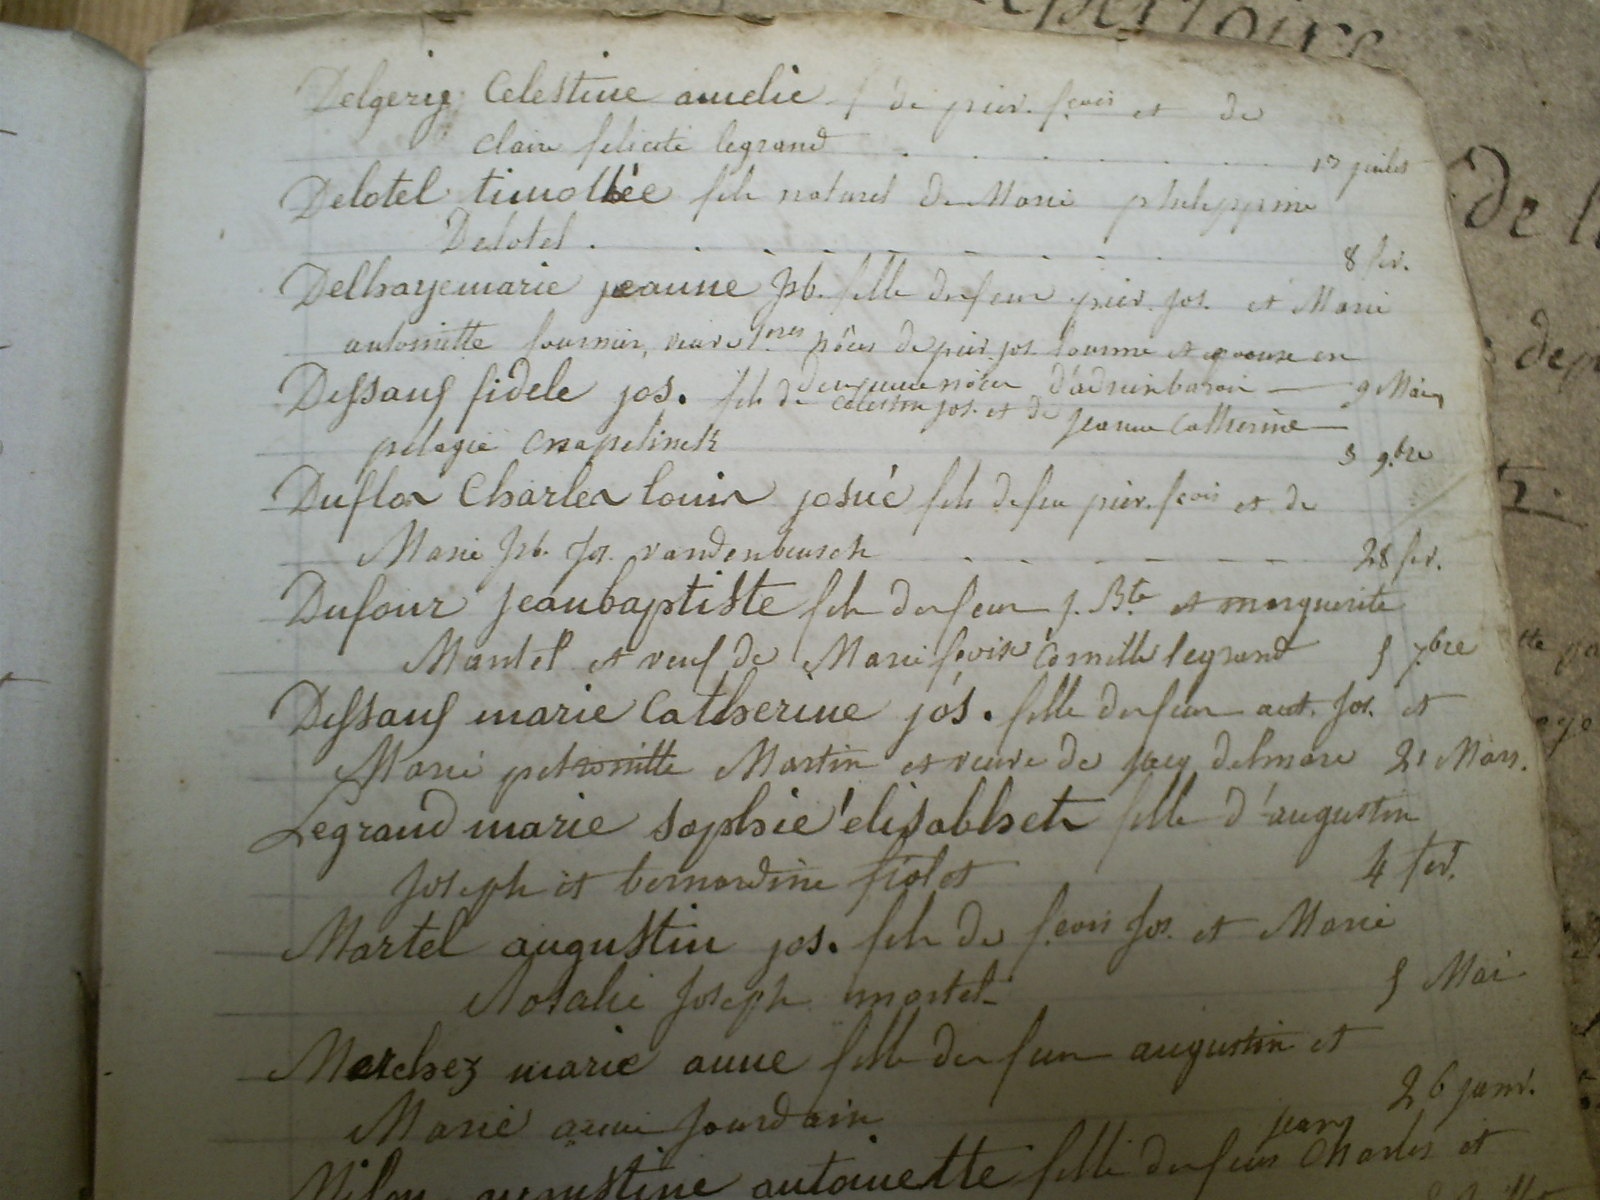 Delgery Celestine amelie f de pier. f.cois et de
claire felicité legrand 17 juillet
Delotel timothée fils naturel de Marie philippine
Delotel 8 fev.
Delhaye marie jeanne Jph. fille de feu pier. jos. et Marie
antoinette fournier, veuve 1.res nôces de pier. jos. et epouse en
deuxieme nôces d'adrien 9 Mai
Dessauf fidele jos. fils de celestin jos. et de jeanne Catherine
pelagie 3 9.bre
Duflos Charles louis josué fils de feu pier. f.cois et de
Marie Jph. Jos. vandenbusch 28 fev.
Dufour jean baptiste fils de feu j. B.te et marguerite
Mantel et veuf de Marie f.coise Cornille legrand 5 7.bre
Dessauf marie Catherine jos. fille de feu ant. Jos. et
Marie petronille Martin et veuve de jacq delmare 21 Mars.
Legrand marie sophie élisabhet fille d'augustin
Joseph et bernardine fiolet 4 fev.
Martel augustin jos. fils de f.cois Jos. et Marie
Rosalie Joseph martel 5 Mai
Marchez marie anne fille de feu augustin et
Marie anne Jourdain 26 janv.
augustine antoinette fille de feu jean Charles et
Repertoire
de l